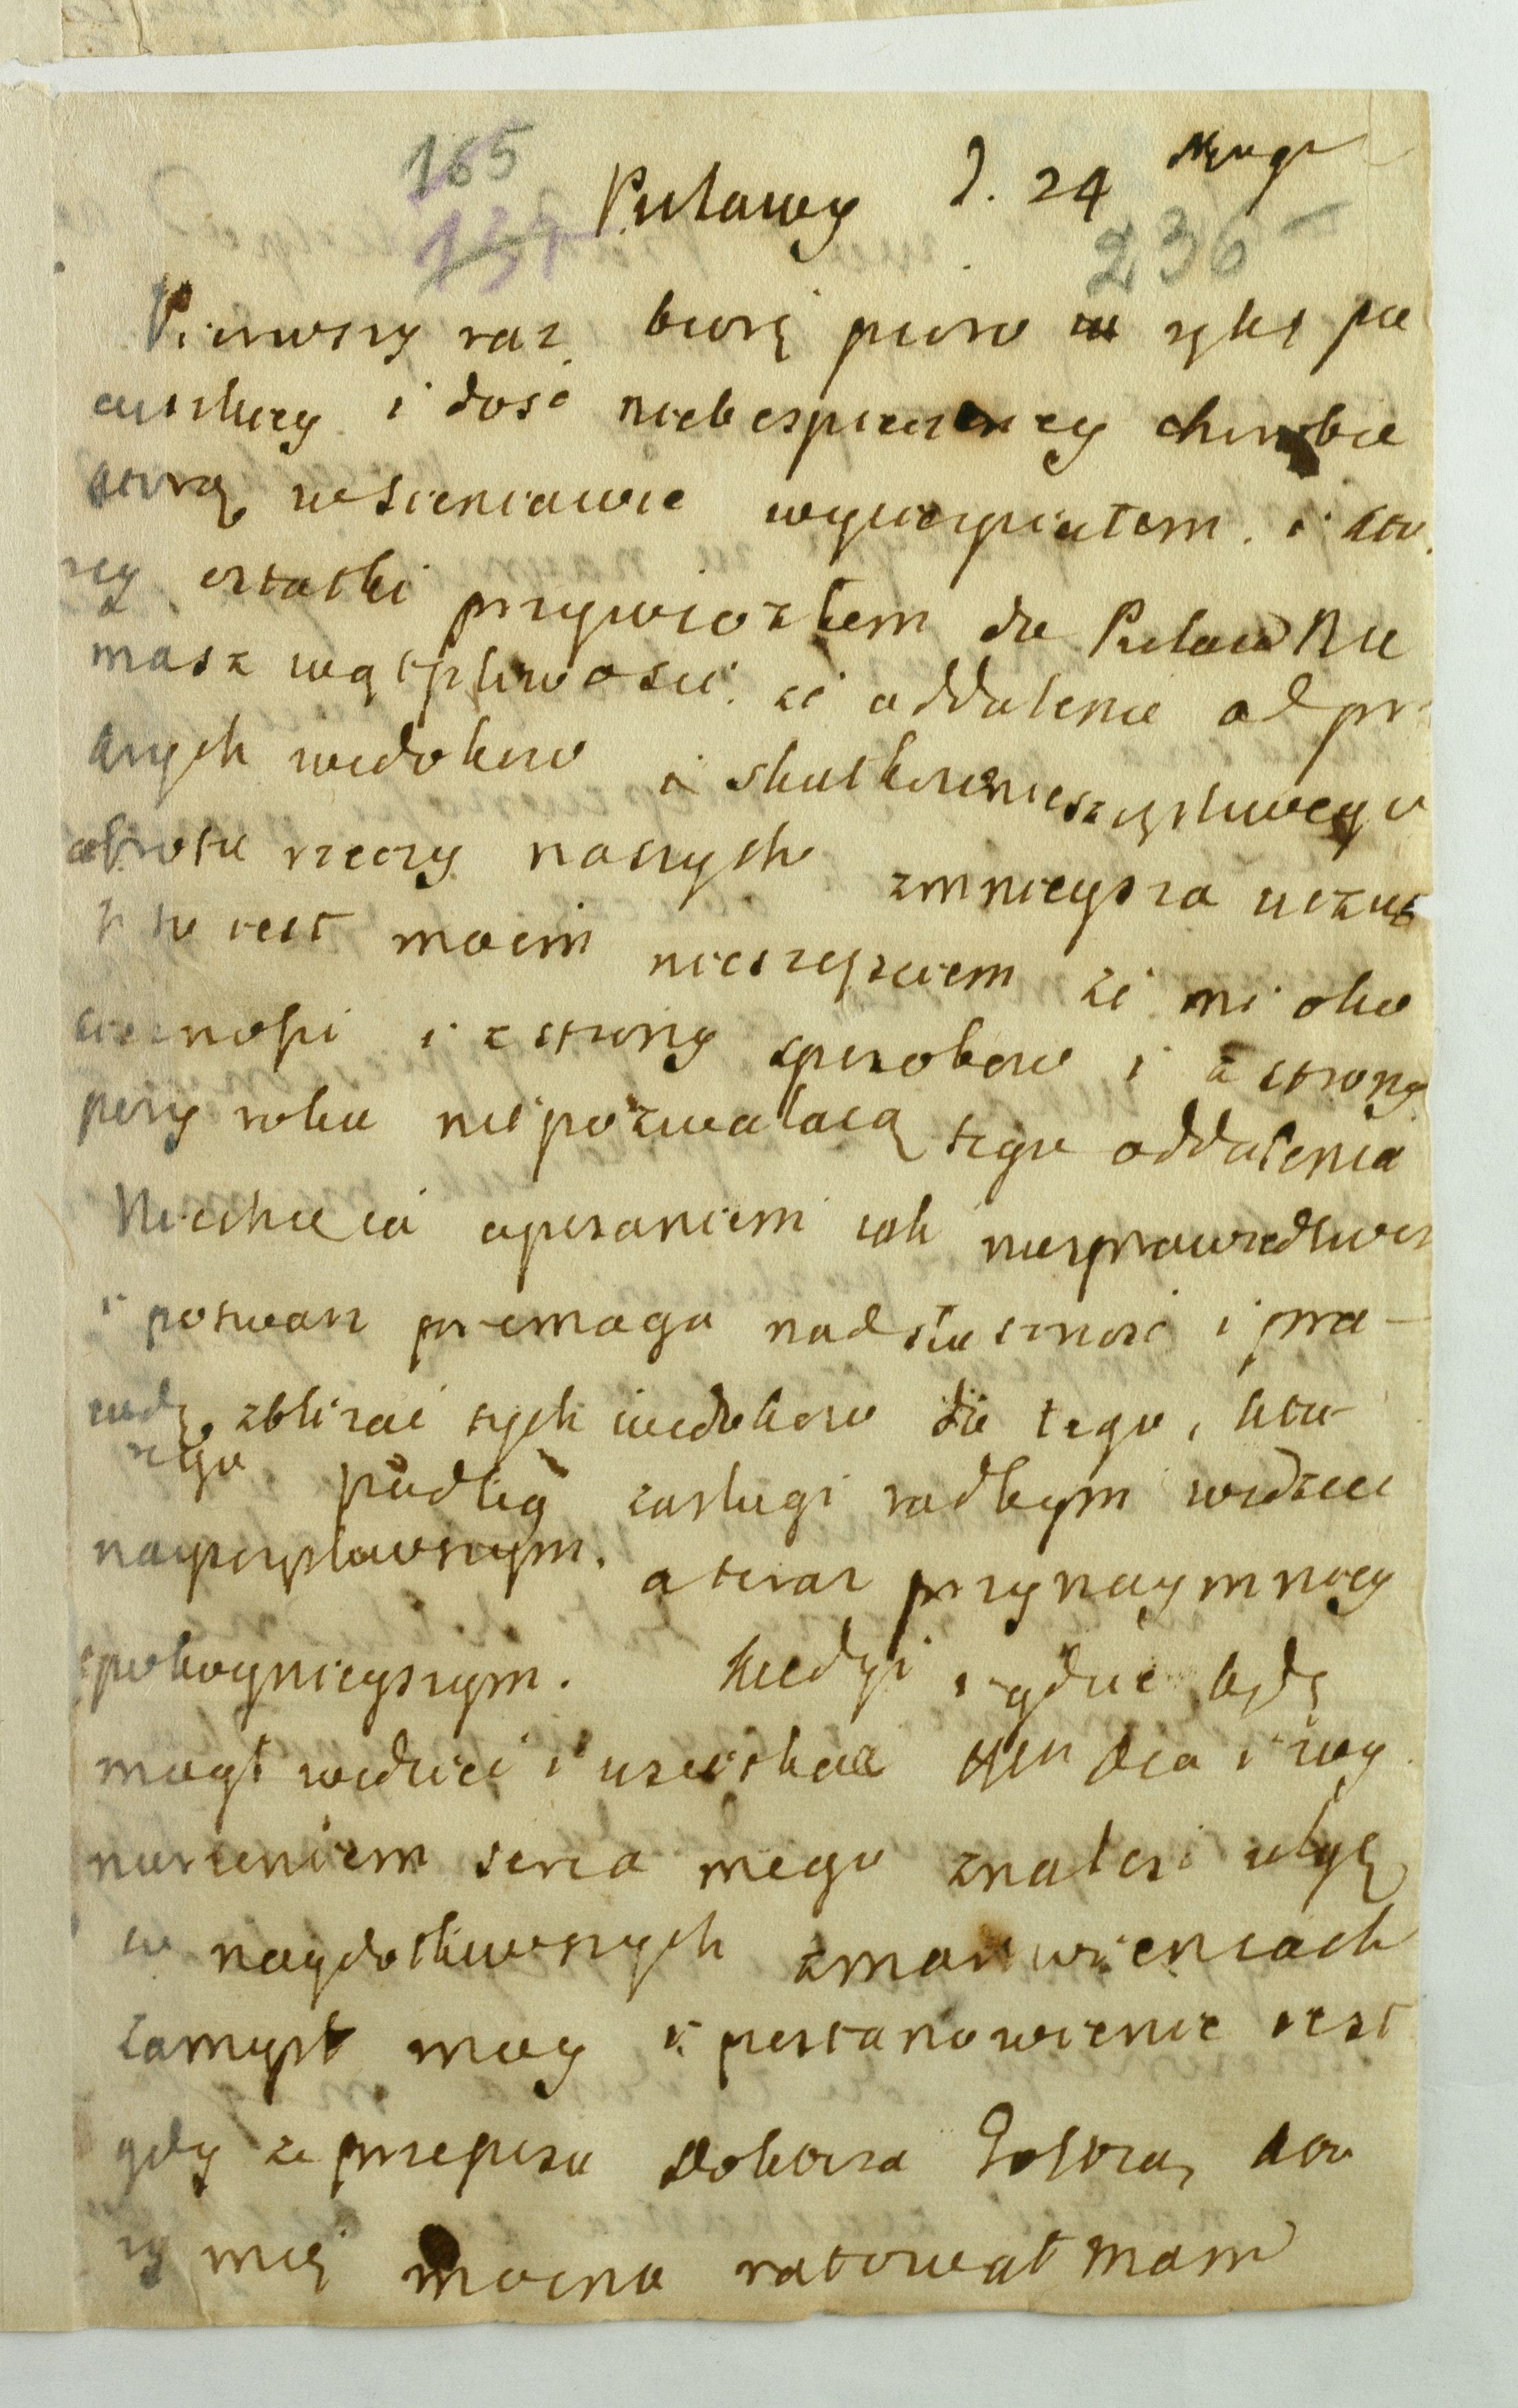 165
131
Puławy d. 24
236
Pierwszy raz biorę pioro w rękę po
cięszkiey i dość niebespieczney chorobie
ktorą w Sieniawie wycierpiałem. i kto
rey ostatki przywiozłem do Puław Nie
masz wątpliwosci. że oddalenie od pr
krych widokow i skutkow nieszczęsliwego
obrotu rzeczy naszych zmnieysza uczuc
to iest moim nieszczęsciem że mi oko
licznosci i z strony sposobow i z strony
pory roku nie pozwalaią tego oddalenia
Niechcę ia opisaniem iak niesprawiedliwos
i potwarz przemaga nad słusznosć i pra-
wdę zbliżać tych widokow do tego, kto-
rego podług zasługi radbym widzieć
nayszczęsliwszym. a teraz przynaymniey
spokoynieyszym. Kiedyż i gdzie będę
mogł widzieć i usciskać i wy
nurzeniem serca mego znalesć ulgę
w naydotkliwszych zmartwieniach
zamysł moy i postanowienie iest
gdy z przepisu doktora Goltza, kto
ry mię mocno ratował mam